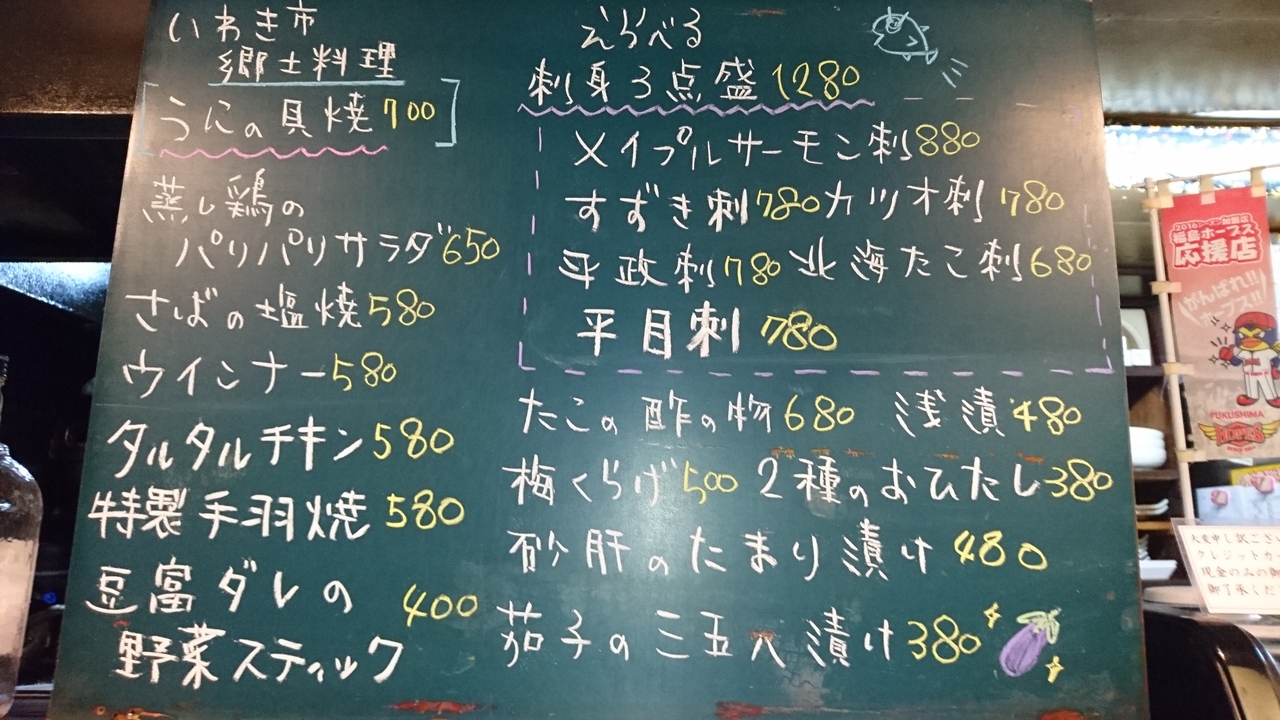 いわき市
郷土料理
うにの貝焼700
蒸し鶏の
パリパリサラダ650
さばの塩焼580
ウインナー580
タルタルチキン580
特製手羽焼580
豆富ダレの 400
野菜スティック
えらべる
刺身3点盛1280
メイプルサーモン刺880
すずき刺780 カツオ刺780
平政刺780 北海たこ刺680
平目刺780
たこの酢の物680 浅漬480
梅くらげ500 2種のおひたし380
砂肝のたまり漬け480
茄子の三五八漬け380
福島ホープス
応援店
がんばれ!!
FUKUSHIMA
HOPES
大変申し訳ござ
クレジットカ
現金のみの御
御了承くだ